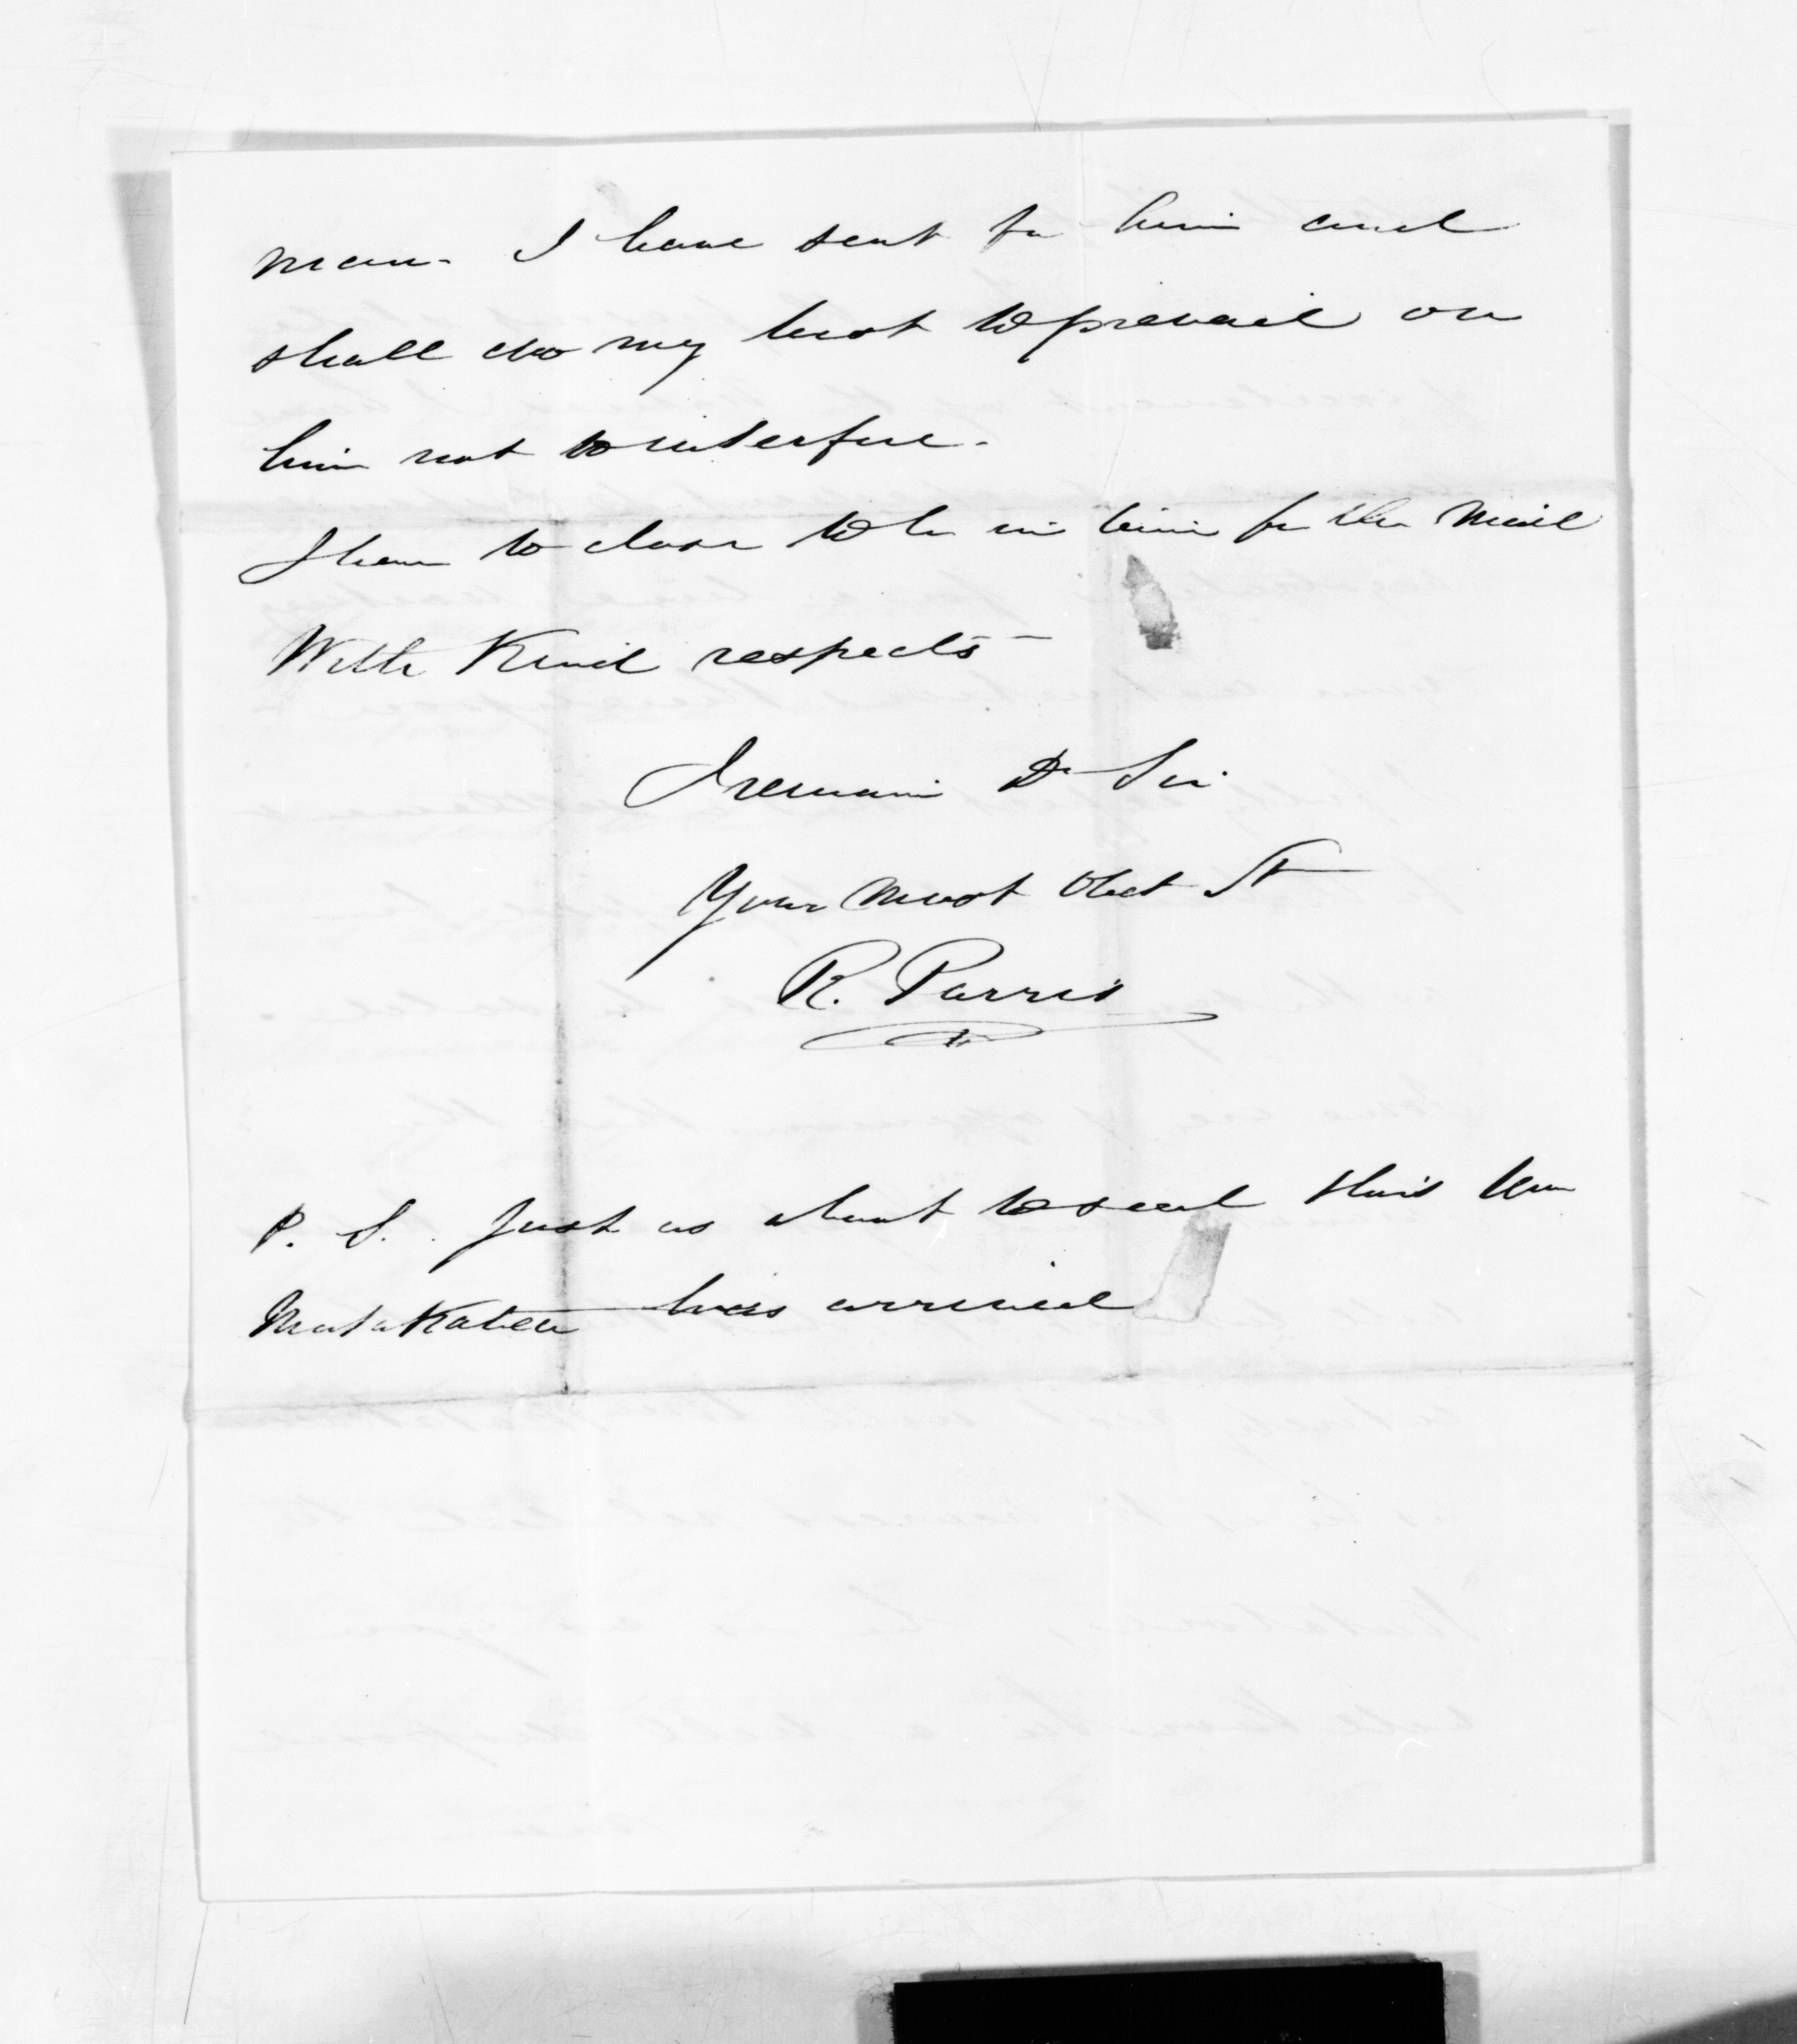 man. I have sent for him and
shall do my best to prevail on
him not to interfere.
I have to close to be in time for the Mail
With Kind respects
I remain Dr Sir
Your most Obdt St
R. Parris
P. S. Just as about to seal this Wm
Matakatea has arrived